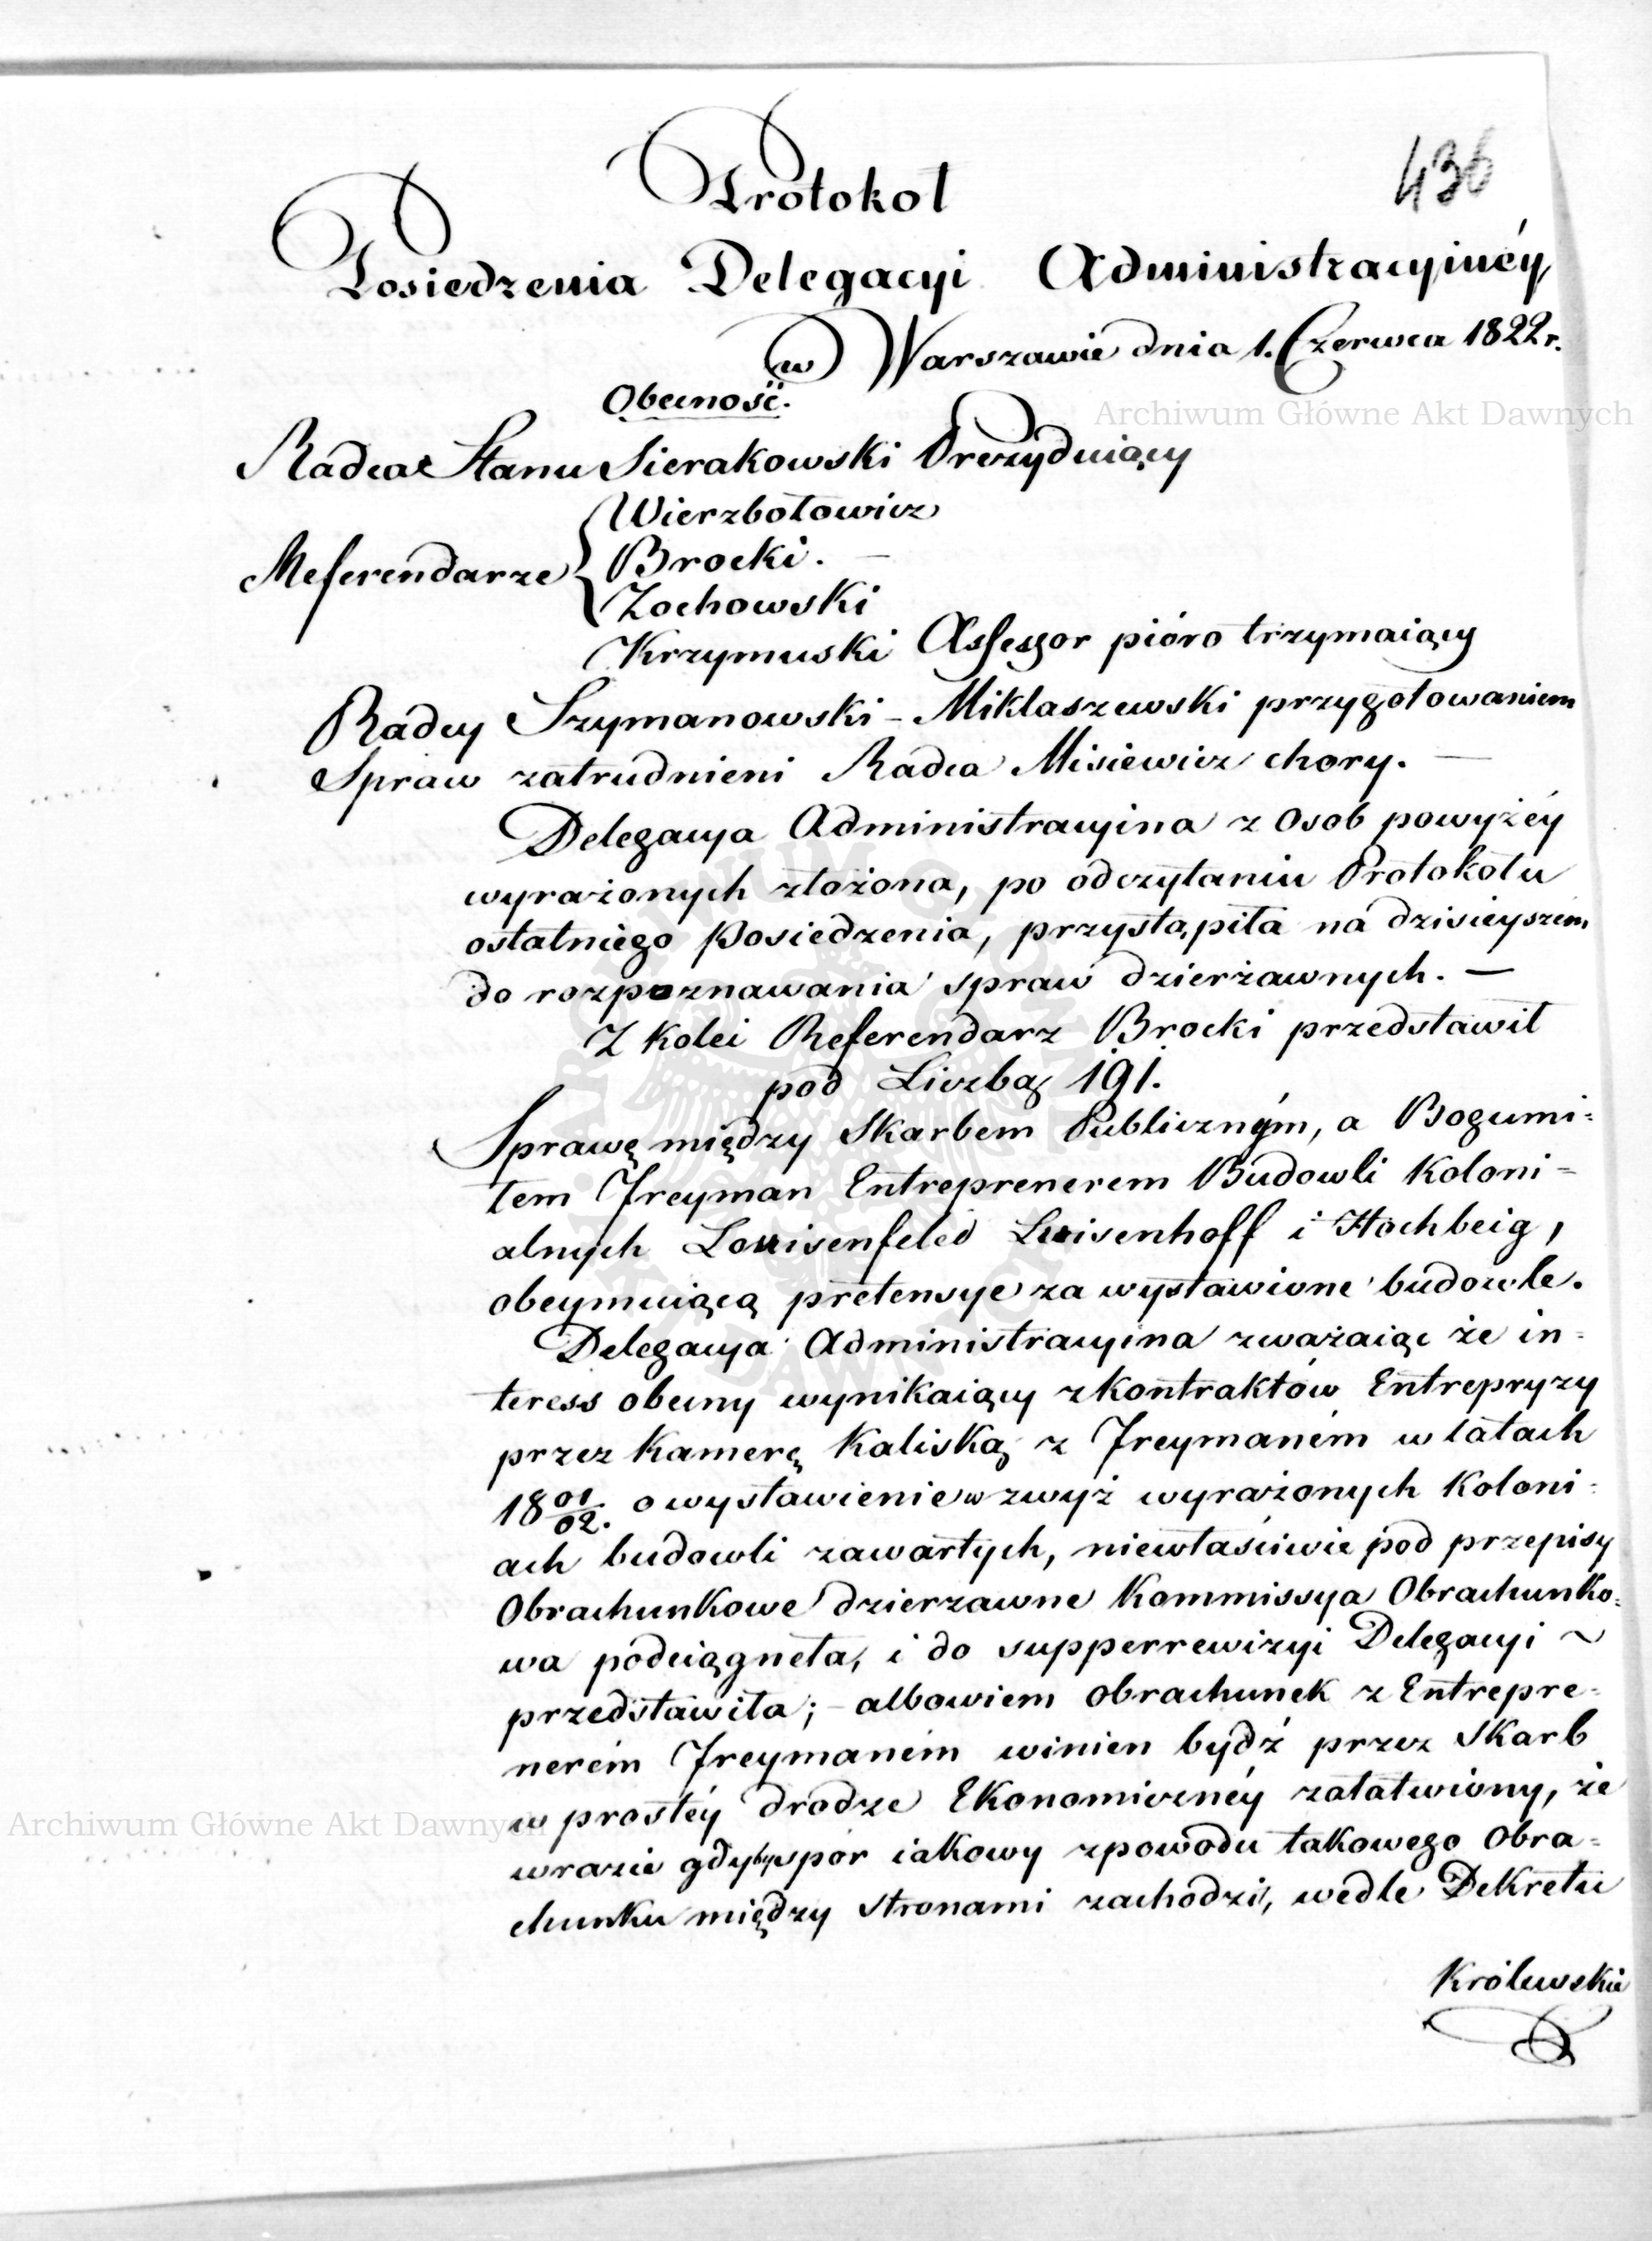 436
Protokoł
Posiedzenia Delegacyi Administracyinéy
w Warszawie dnia 1. Czerwca 1822 r.
Obecność.
Archiwum Główne Akt Dawnych
Radca Stanu Sierakowski Prezyduiący
Referendarze { Wierzbołowicz
Brocki. —
Zochowski
Krzymuski Assessor pióro trzymaiący
Radcy Szymanowski - Miklaszewski przygotowaniem
Spraw zatrudnieni Radca Misiewicz chory. —
Delegacya Administracyina z osob powyżéy
wyrażonych złożona, po odczytaniu Protokołu
ostatniego Posiedzenia, przystąpiła na dzisieyszém
do rozpoznawania spraw dzierżawnych. —
Z kolei Referendarz Brocki przedstawił
pod Liczbą 191.
Sprawę między Skarbem Publicznym, a Bogumi-
łem Freyman Entreprenerem Budowli Koloni-
alnych Louisenfeled Luisenhoff i Hochbeig,
obeymuiącą pretensye za wystawione budowle.
Delegacya Administracyina zważaiąc że in-
teress obecny wynikaiący z kontraktów Entrepryzy
przez Kamerę Kaliską z Freymaném w latach
18 01/02. o wystawienie w zwyż wyrażonych Koloni-
ach budowli zawartych, niewłaściwie pod przepisy
Obrachunkowe dzierżawne Kommissya Obrachunko-
wa podciągnęła, i do supperrewizyi Delegacyi ~
przedstawiła; - albowiem obrachunek z Entrepre-
nerém Freymaném winien bydź przez Skarb
w prostéy drodze Ekonomicznéy załatwiony, że
Archiwum Główne Akt Dawnych
w razie gdyby spór iakowy z powodu takowego Obra-
chunku między stronami zachodził, wedle Dekretu
Królewskie